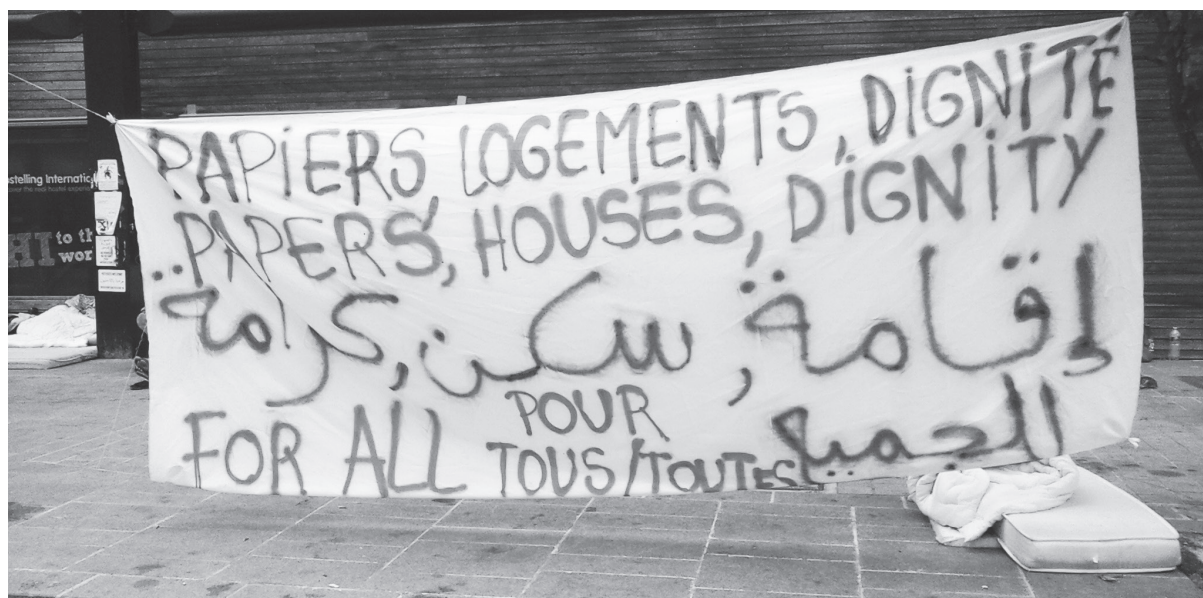 PAPIERS, LOGEMENTS, DIGNITÉ
PAPERS, HOUSES, DIGNITY
إقامة, سكن, كرامة
FOR ALL
POUR
TOUS/TOUTES
للجميع
stelling Internati
HI to th
wor